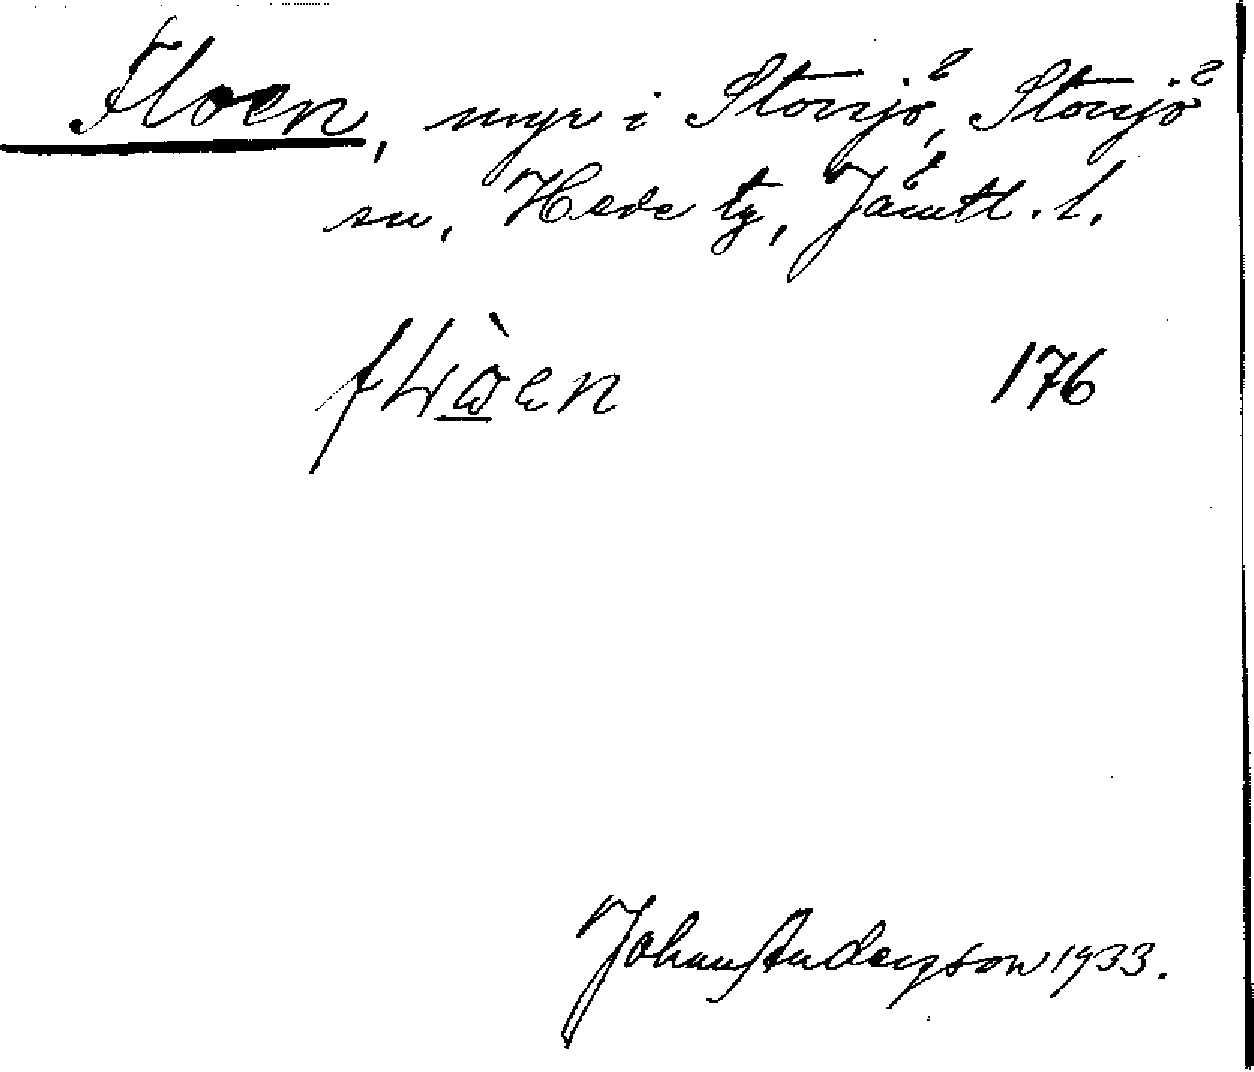 Floen, myr i Storsjö, Storsjö
sn, Hede tg, Jämtl. l.
176
Johan Anderson 1933.